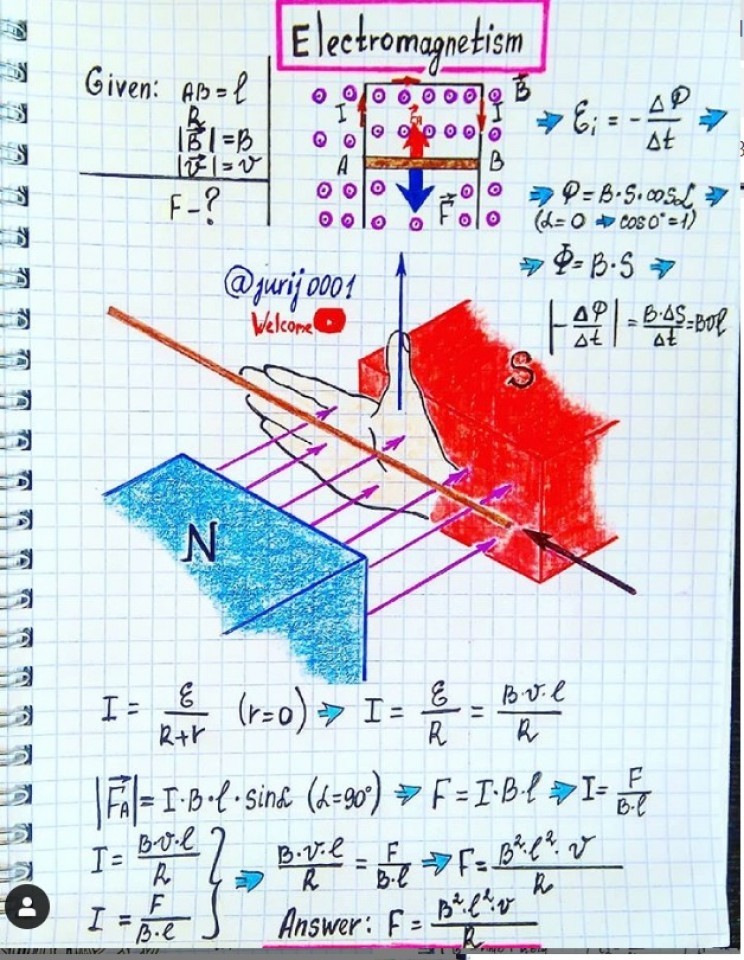 Electromagnetism
Given: AB = l
R
|B⃗| = B
|v⃗| = v
F - ?
I
I
B⃗
A
B
F⃗
ℰi = - ΔΦ/Δt ⇒
⇒ Φ = B·S·cosα ⇒
(α = 0 ⇒ cos0° = 1)
⇒ Φ = B·S ⇒
|- ΔΦ/Δt| = B·ΔS/Δt = Bvl
@jurij0001
Welcome
S
N
I = ℰ/R+r (r=0) ⇒ I = ℰ/R = B·v·l/R
|F⃗A| = I·B·l·sinα (α=90°) ⇒ F = I·B·l ⇒ I = F/B·l
I = B·v·l/R
I = F/B·l
} ⇒ B·v·l/R = F/B·l ⇒ F = B²·l²·v/R
Answer: F = B²·l²·v/R